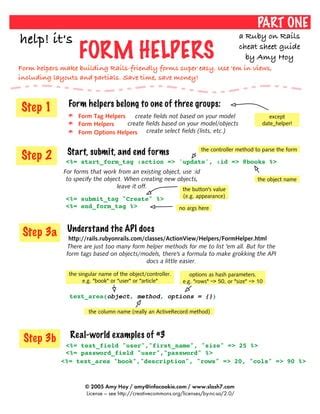 PART ONE
help! it's
FORM HELPERS
a Ruby on Rails
cheat sheet guide
by Amy Hoy
Form helpers make building Rails-friendly forms super easy. Use 'em in views,
including layouts and partials. Save time, save money!
Step 1
Form helpers belong to one of three groups:
Form Tag Helpers create fields not based on your model
Form Helpers create fields based on your model/objects
Form Options Helpers create select fields (lists, etc.)
except
date_helper!
Step 2
Start, submit, and end forms
the controller method to parse the form
<%= start_form_tag :action => 'update', :id => @books %>
For forms that work from an existing object, use :id
to specify the object. When creating new objects,
leave it off.
the object name
the button's value
(e.g. appearance)
<%= submit_tag "Create" %>
<%= end_form_tag %>
no args here
Step 3a
Understand the API docs
http://rails.rubyonrails.com/classes/ActionView/Helpers/FormHelper.html
There are just too many form helper methods for me to list 'em all. But for the
form tags based on objects/models, there's a formula to make grokking the API
docs a little easier.
the singular name of the object/controller.
e.g. "book" or "user" or "article"
options as hash parameters.
e.g. "rows" => 50, or "size" => 10
text_area(object, method, options = {})
the column name (really an ActiveRecord method)
Step 3b
Real-world examples of #3
<%= text_field "user","first_name", "size" => 25 %>
<%= password_field "user","password" %>
<%= text_area "book","description", "rows" => 20, "cols" => 90 %>
© 2005 Amy Hoy / amy@infocookie.com / www.slash7.com
License – see http://creativecommons.org/licenses/by-nc-sa/2.0/